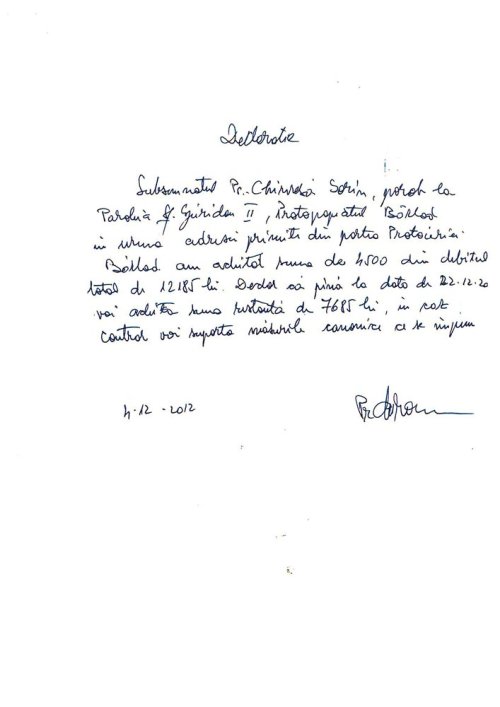 Declaratie
Subsemnatul Pr. Chirvdă Sorin, paroh la
Parohia Sf. Spiridon II, Protopopiatul Bârlad
în urma adresei primite din partea Protoieriei
Bârlad am achitat suma de 4500 din debitul
total de 12185 lei. Declar că pînă la data de 22.12.20
voi achita suma restantă de 7685 lei, în caz
contrar voi suporta măsurile canonice ce se impun
4.12.2012
Pr.